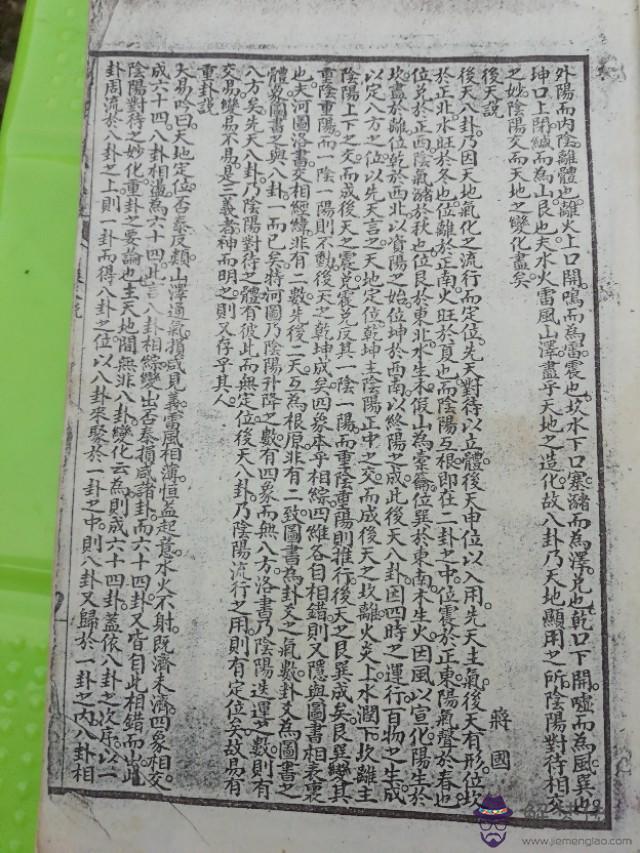 外陽而內陰離體也離火上口開鳴而為雷震也坎水下口塞瀦而為澤兌也乾口下開噓而為風巽也
坤口上閉緘而為山艮也夫水火雷風山澤盡乎天地之造化故八卦乃天地顯用之所陰陽對待相交
之妙陰陽交而天地之變化盡矣
後天說
蔣國
後天八卦乃因天地氣化之流行而定位先天對待以立體後天申位以入用先天主氣後天有形位坎
於正北水旺於冬也位離於正南火旺於夏也而陰陽互根即在二卦之中位震於正東陽氣聲於春也
位兌於正西陰氣瀦於秋也位艮於東北水生木假山為臺鑰位巽於東南木生火因風以宣化陽生於
坎盡於離位乾於西北以資陽之始位坤於西南以終陽之成此後天八卦因四時之運行百物之生成
以定八方之位以先天言之天地定位乾坤主陰陽正中之交而成後天之坎離火炎上水潤下坎離主
陰陽上下之交而成後天之震兌震兌反其一陰一陽而重陰重陽則推行後天之艮巽成矣艮巽變其
重陰重陽而一陰一陽則不動後天之乾坤成矣四象本乎相綜四維各自相錯則又隱與圖書相表裏
也夫河圖洛書交相經緯非有二數先後二天互為根原非有二致圖書為卦爻之氣數卦爻為圖書之
體象圖書之與八卦一而已矣特河圖乃陰陽升降之數有四象而無八方洛書乃陰陽迭運之數則有
八方矣先天八卦乃陰陽對待之體有彼此而無定位後天八卦乃陰陽流行之用則有定位矣故易有
交易變易不易是三義者神而明之則又存乎其人
重卦說
大易吟曰天地定位否泰反類山澤通氣損咸見義雷風相薄恒益起意水火不射既濟未濟四象相交
成六十四八卦相盪為六十四此言八卦相綜變出否泰損咸諸卦而六十四卦又皆自此相錯而出此
陰陽對待之妙化重卦之要論也主天地間無非八卦變化云為則成六十四卦蓋依八卦之次序以一
卦周流於八卦之上則一卦而得八卦之位以八卦來聚於一卦之中則八卦又歸於一卦之內八卦相
www.jiemenglao.com